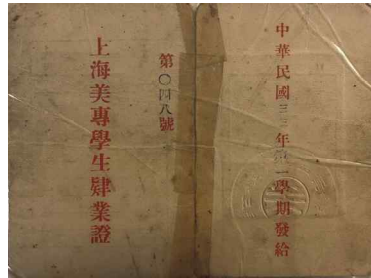 中華民國三三年第一學期發給
第〇四八號
上海美專學生肄業證